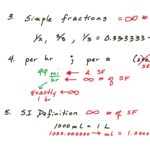 3. Simple fractions = ∞ #
1/2, 3/5, 1/3 = 0.333333-
4. per hr ; per s
49 mi ← 2 SF
hr ← ∞ # of SF
exactly ← ∞
1 hr
5. SI Definition ∞ # of SF
1000 mL = 1 L
1000.000000 → mL = 1.000